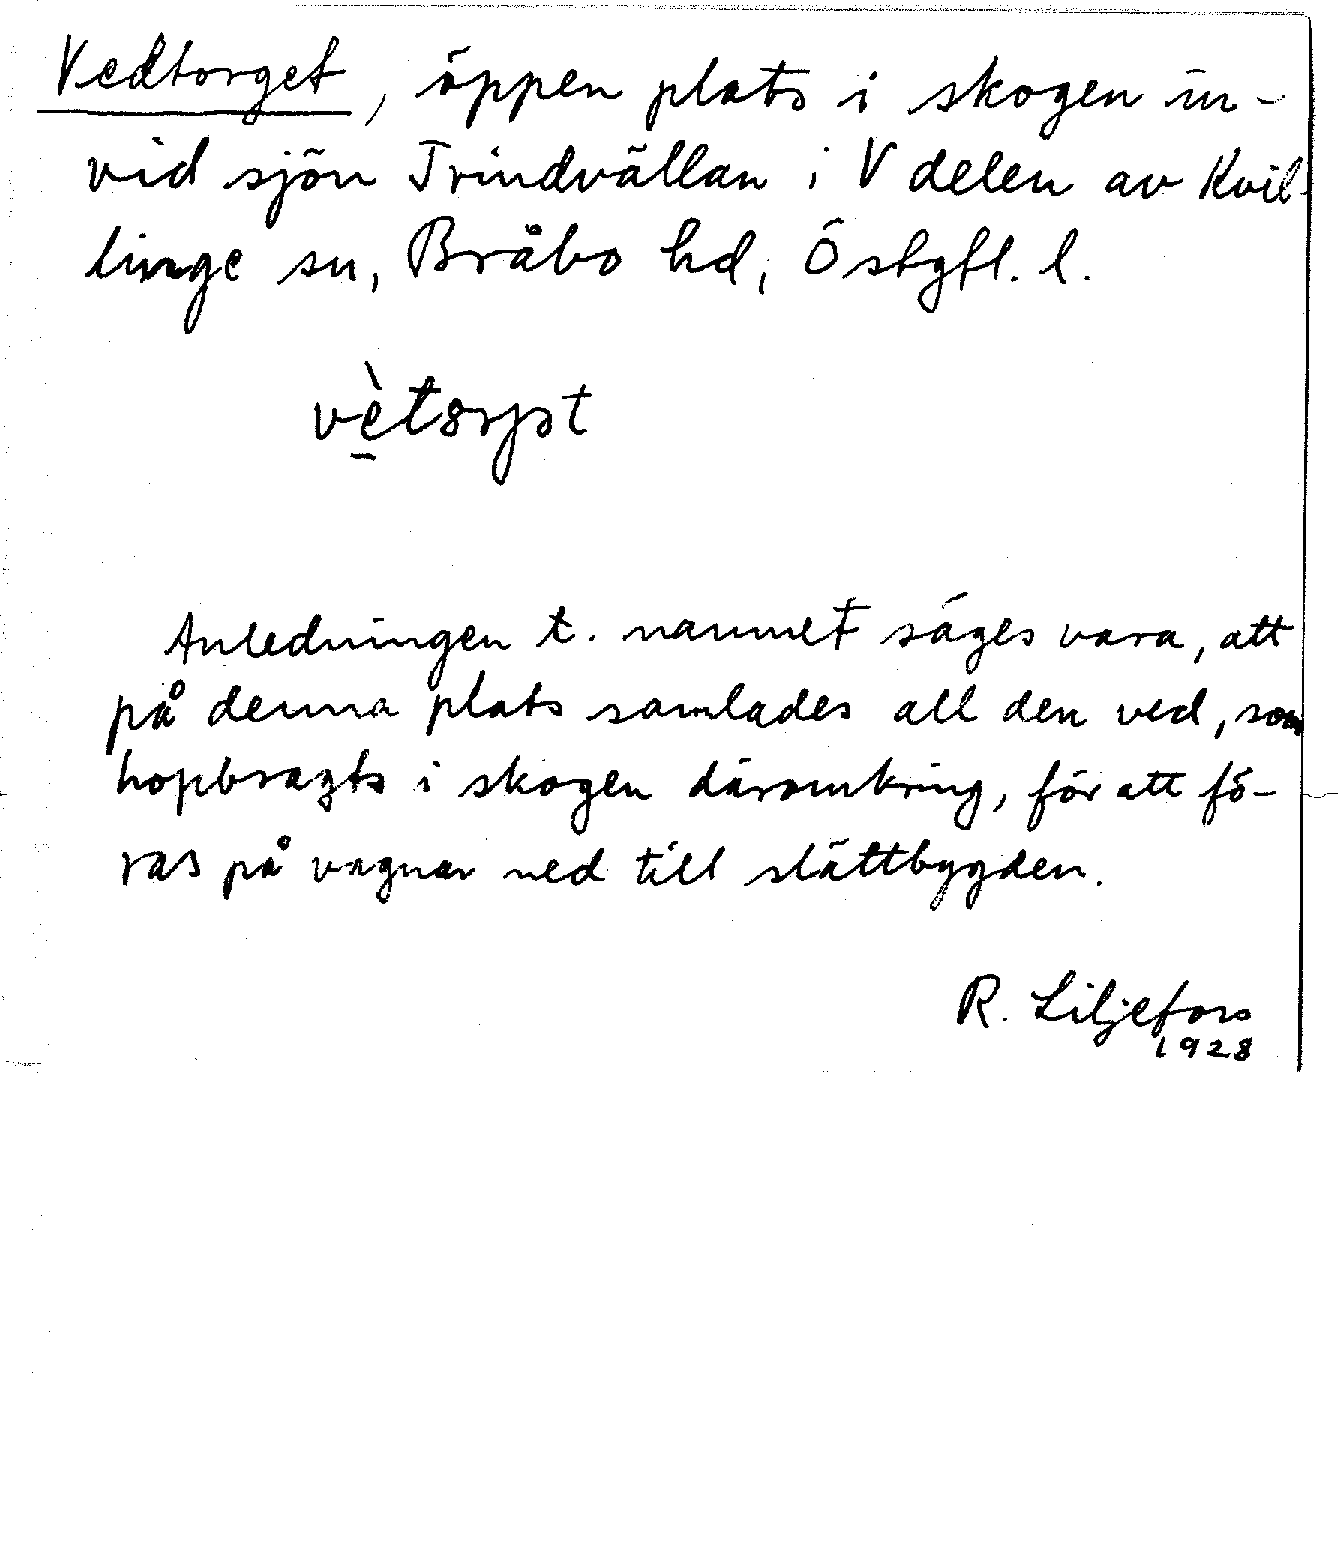 Vedtorget, öppen plats i skogen in-
vid sjön Trindvällan i V delen av Kvil-
linge sn, Bråbo hd, Östgtl. l.
Anledningen t. namnet säges vara, att
på denna plats samlades all den ved, som
hopbragts i skogen däromkring, för att fö-
ras på vagnar ned till slättbygden.
R. Liljefors
1928